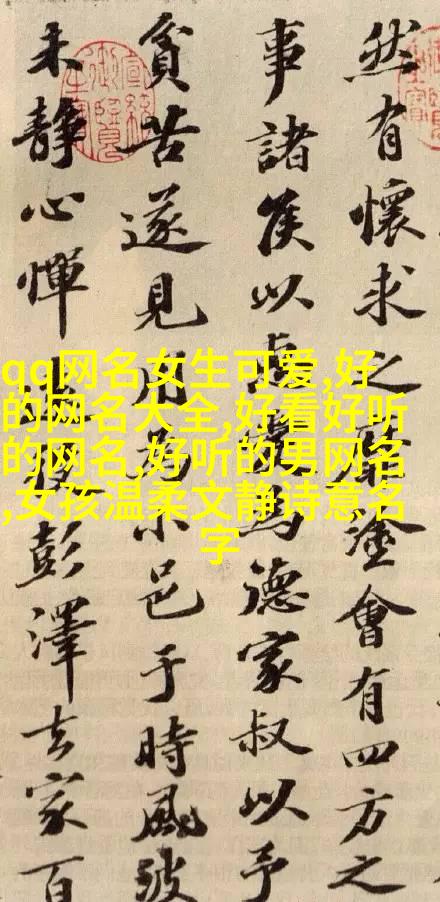 然有懷求之塗會有四方之
事諸侯以為德家叔以予
貧苦遂見用為小邑于時風波
未靜心憚役彭澤去家百
qq网名女生可爱,好
的网名大全,好看好听
的网名,好听的男网名
,女孩温柔文静诗意名
字